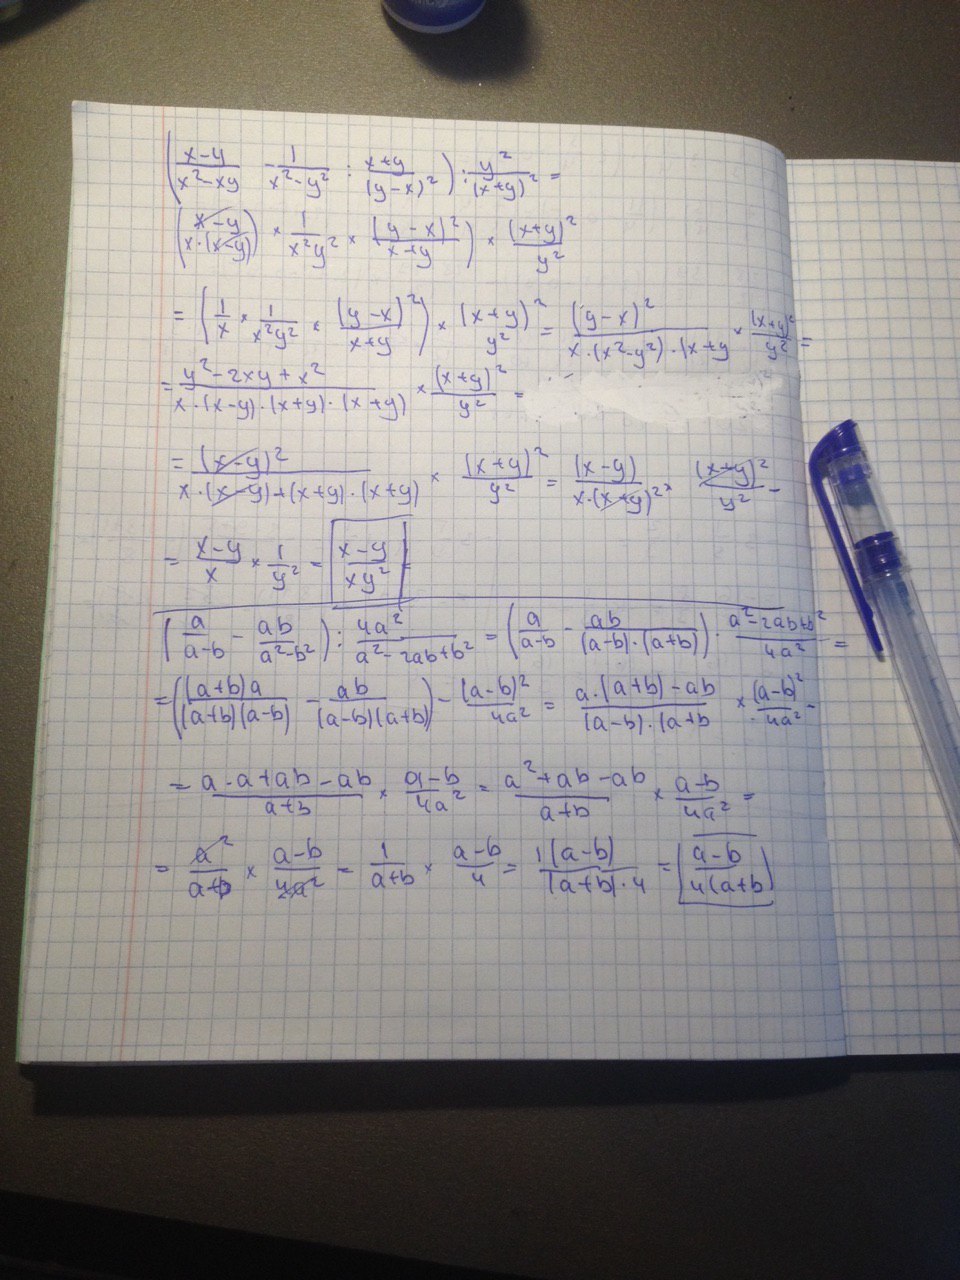 ((x-y)/(x²-xy) - 1/(x²-y²) : (x+y)/(y-x)²) : y²/(x+y)² =
((x-y)/(x·(x-y)) × 1/(x²y²) × (y-x)²/(x+y)) × (x+y)²/y²
= (1/x × 1/(x²y²) × (y-x)²/(x+y)) × (x+y)²/y² = (y-x)²/(x·(x²-y²)·(x+y) × (x+y)²/y² =
= (y²-2xy+x²)/(x·(x-y)·(x+y)·(x+y)) × (x+y)²/y² =
= (x-y)²/(x·(x-y)·(x+y)·(x+y)) × (x+y)²/y² = (x-y)/(x·(x+y)²) × (x+y)²/y² -
= (x-y)/x × 1/y² = (x-y)/(xy²)
(a/(a-b) - ab/(a²-b²)) : 4a²/(a²-2ab+b²) = (a/(a-b) - ab/((a-b)·(a+b))) · (a²-2ab+b²)/4a² =
= ((a+b)a/((a+b)(a-b)) - ab/((a-b)(a+b))) - (a-b)²/4a² = (a·(a+b)-ab)/((a-b)·(a+b) × (a-b)²/4a² -
= (a·a+ab-ab)/(a+b) × (a-b)/4a² = (a²+ab-ab)/(a+b) × (a-b)/4a² =
= a²/(a+b) × (a-b)/4a² = 1/(a+b) × (a-b)/4 = 1(a-b)/((a+b)·4) = (a-b)/(4(a+b)